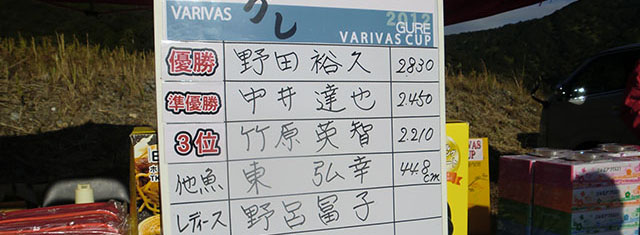 VARIVAS
うし
2012
GURE
VARIVAS CUP
優勝 野田 裕久 2830
準優勝 中井 達也 2.450
3位 竹原 英智 2.210
他魚 東 弘幸 44.8cm
レディース 野呂 冨子